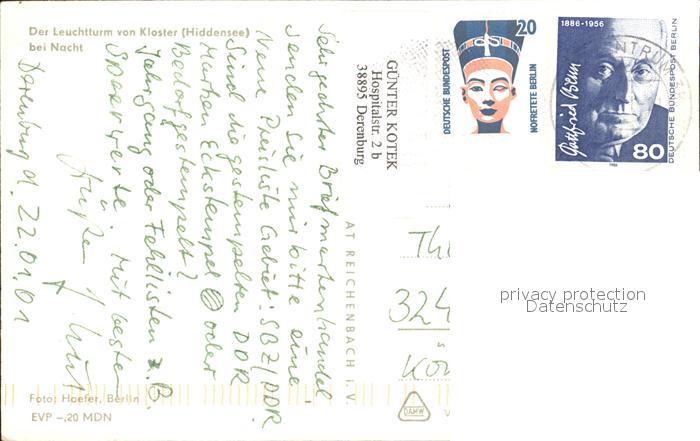 Der Leuchtturm von Kloster (Hiddensee)
bei Nacht
Derenburg d. 22.01.01
Sehrgeehrter Briefmarkenhandel
senden Sie mir bitte eine
Neue Preisliste Gebiet: SBZ/DDR
Sind die gestempelten DDR
Marken Eckstempel oder
Bedarfgestempelt?
Jahrgang oder Fehllisten z.B.
Sperrwerte. Mit besten
Grüßen
GÜNTER KOTEK
Hospitalstr. 2 b
38895 Derenburg
20
DEUTSCHE BUNDESPOST
NOFRETETE BERLIN
1886-1956
Gottfried Benn
80
DEUTSCHE BUNDESPOST BERLIN
1986
AT REICHENBACH I. V.
324
privacy protection
Datenschutz
Foto: Haefer, Berlin
EVP -,20 MDN
DAMW